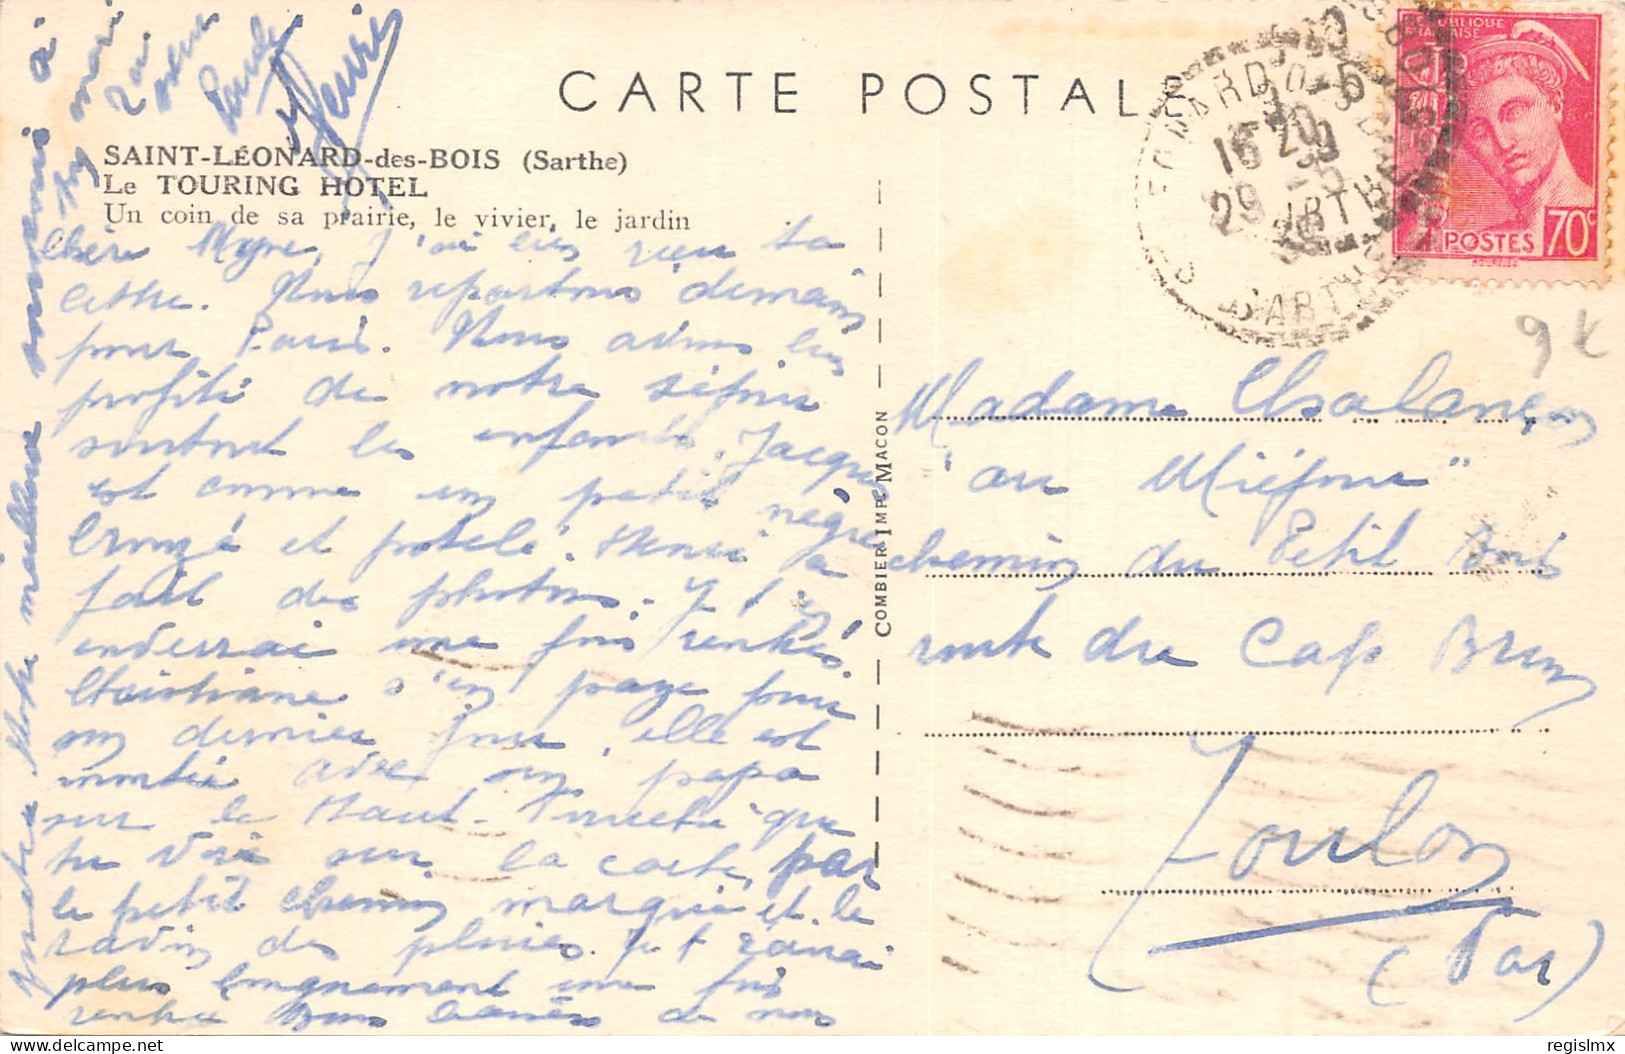 CARTE POSTALE
SAINT-LÉONARD-des-BOIS (Sarthe)
Le TOURING HOTEL
Un coin de sa prairie, le vivier, le jardin
Chère Myne, J'ai bien reçu ta
lettre. Nous repartons demain
pour Paris. Nous avons bien
profité de notre séjour
surtout les enfants. Jacques
est comme un petit nègre
bronzé et potelé. Henri a
fait des photos. Je t'en
enverrai une fois rentrés.
Christiane s'en paye pour
son dernier jour, elle est
montée avec son papa
sur le Haut-Fourché que
tu vois sur la carte, par
le petit chemin marqué et le
ravin des pluies. Je t'écrirai
plus longuement une fois
rentrée Bons baisers de nous
quatre meilleur souvenir à
ton mari
ta soeur
Henri
COMBIER IMP. MACON
REPUBLIQUE FRANÇAISE
POSTES 70c
16 20
29
SARTHE
9 €
Madame Chalançon
"au Miéjour"
chemin du Petit Bois
route du Cap Brun
Toulon
(Var)
regislmx